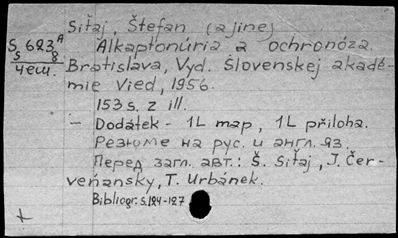 Siťaj, Štefan (a jiné)
S 623 A
Alkaptonúria a ochronóza.
5 8
Bratislava, Vyd. Slovenskej akadé-
4 еш.
mie vied, 1956.
153 s. z ill.
— Dodátek - 1L map, 1L příloha.
Резюме на рус. и англ. яз.
Перед загл. авт.: Š. Siťaj, J. Čer-
veňansky, T. Urbánek.
Bibliogr: s. 124-127